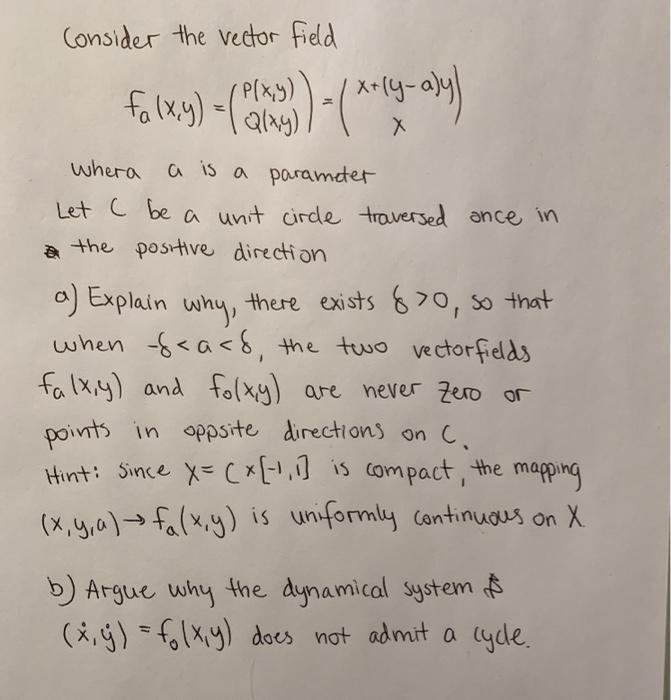 Consider the vector field
fₐ(x,y) = (P(x,y) Q(x,y)) = (x+(y-a)y x)
whera a is a parameter
Let C be a unit circle traversed once in
the positive direction
a) Explain why, there exists δ>0, so that
when -δ<a<δ, the two vectorfields
fₐ(x,y) and f₀(x,y) are never zero or
points in oppsite directions on C.
Hint: Since X = C×[-1,1] is compact, the mapping
(x,y,a)→fₐ(x,y) is uniformly continuous on X.
b) Argue why the dynamical system
(ẋ,ẏ) = f₀(x,y) does not admit a cycle.